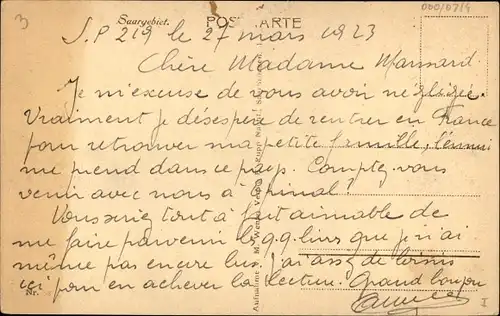 3
Saargebiet.
POSTKARTE
000/07/4
S.P 219 le 27 mars 1923
Chère Madame Manssard
Je m'excuse de vous avoir négligée.
Vraiment je désespère de rentrer en France
pour retrouver ma petite famille, l'ennui
me prend dans ce pays. Comptez-vous
venir avec nous à Epinal?
Vous seriez tout à fait aimable de
me faire parvenir les q.q. livres que je n'ai
même pas encore lus. J'ai assez de loisirs
ici pour en achever la lecture. Grand bonjour
Nr.